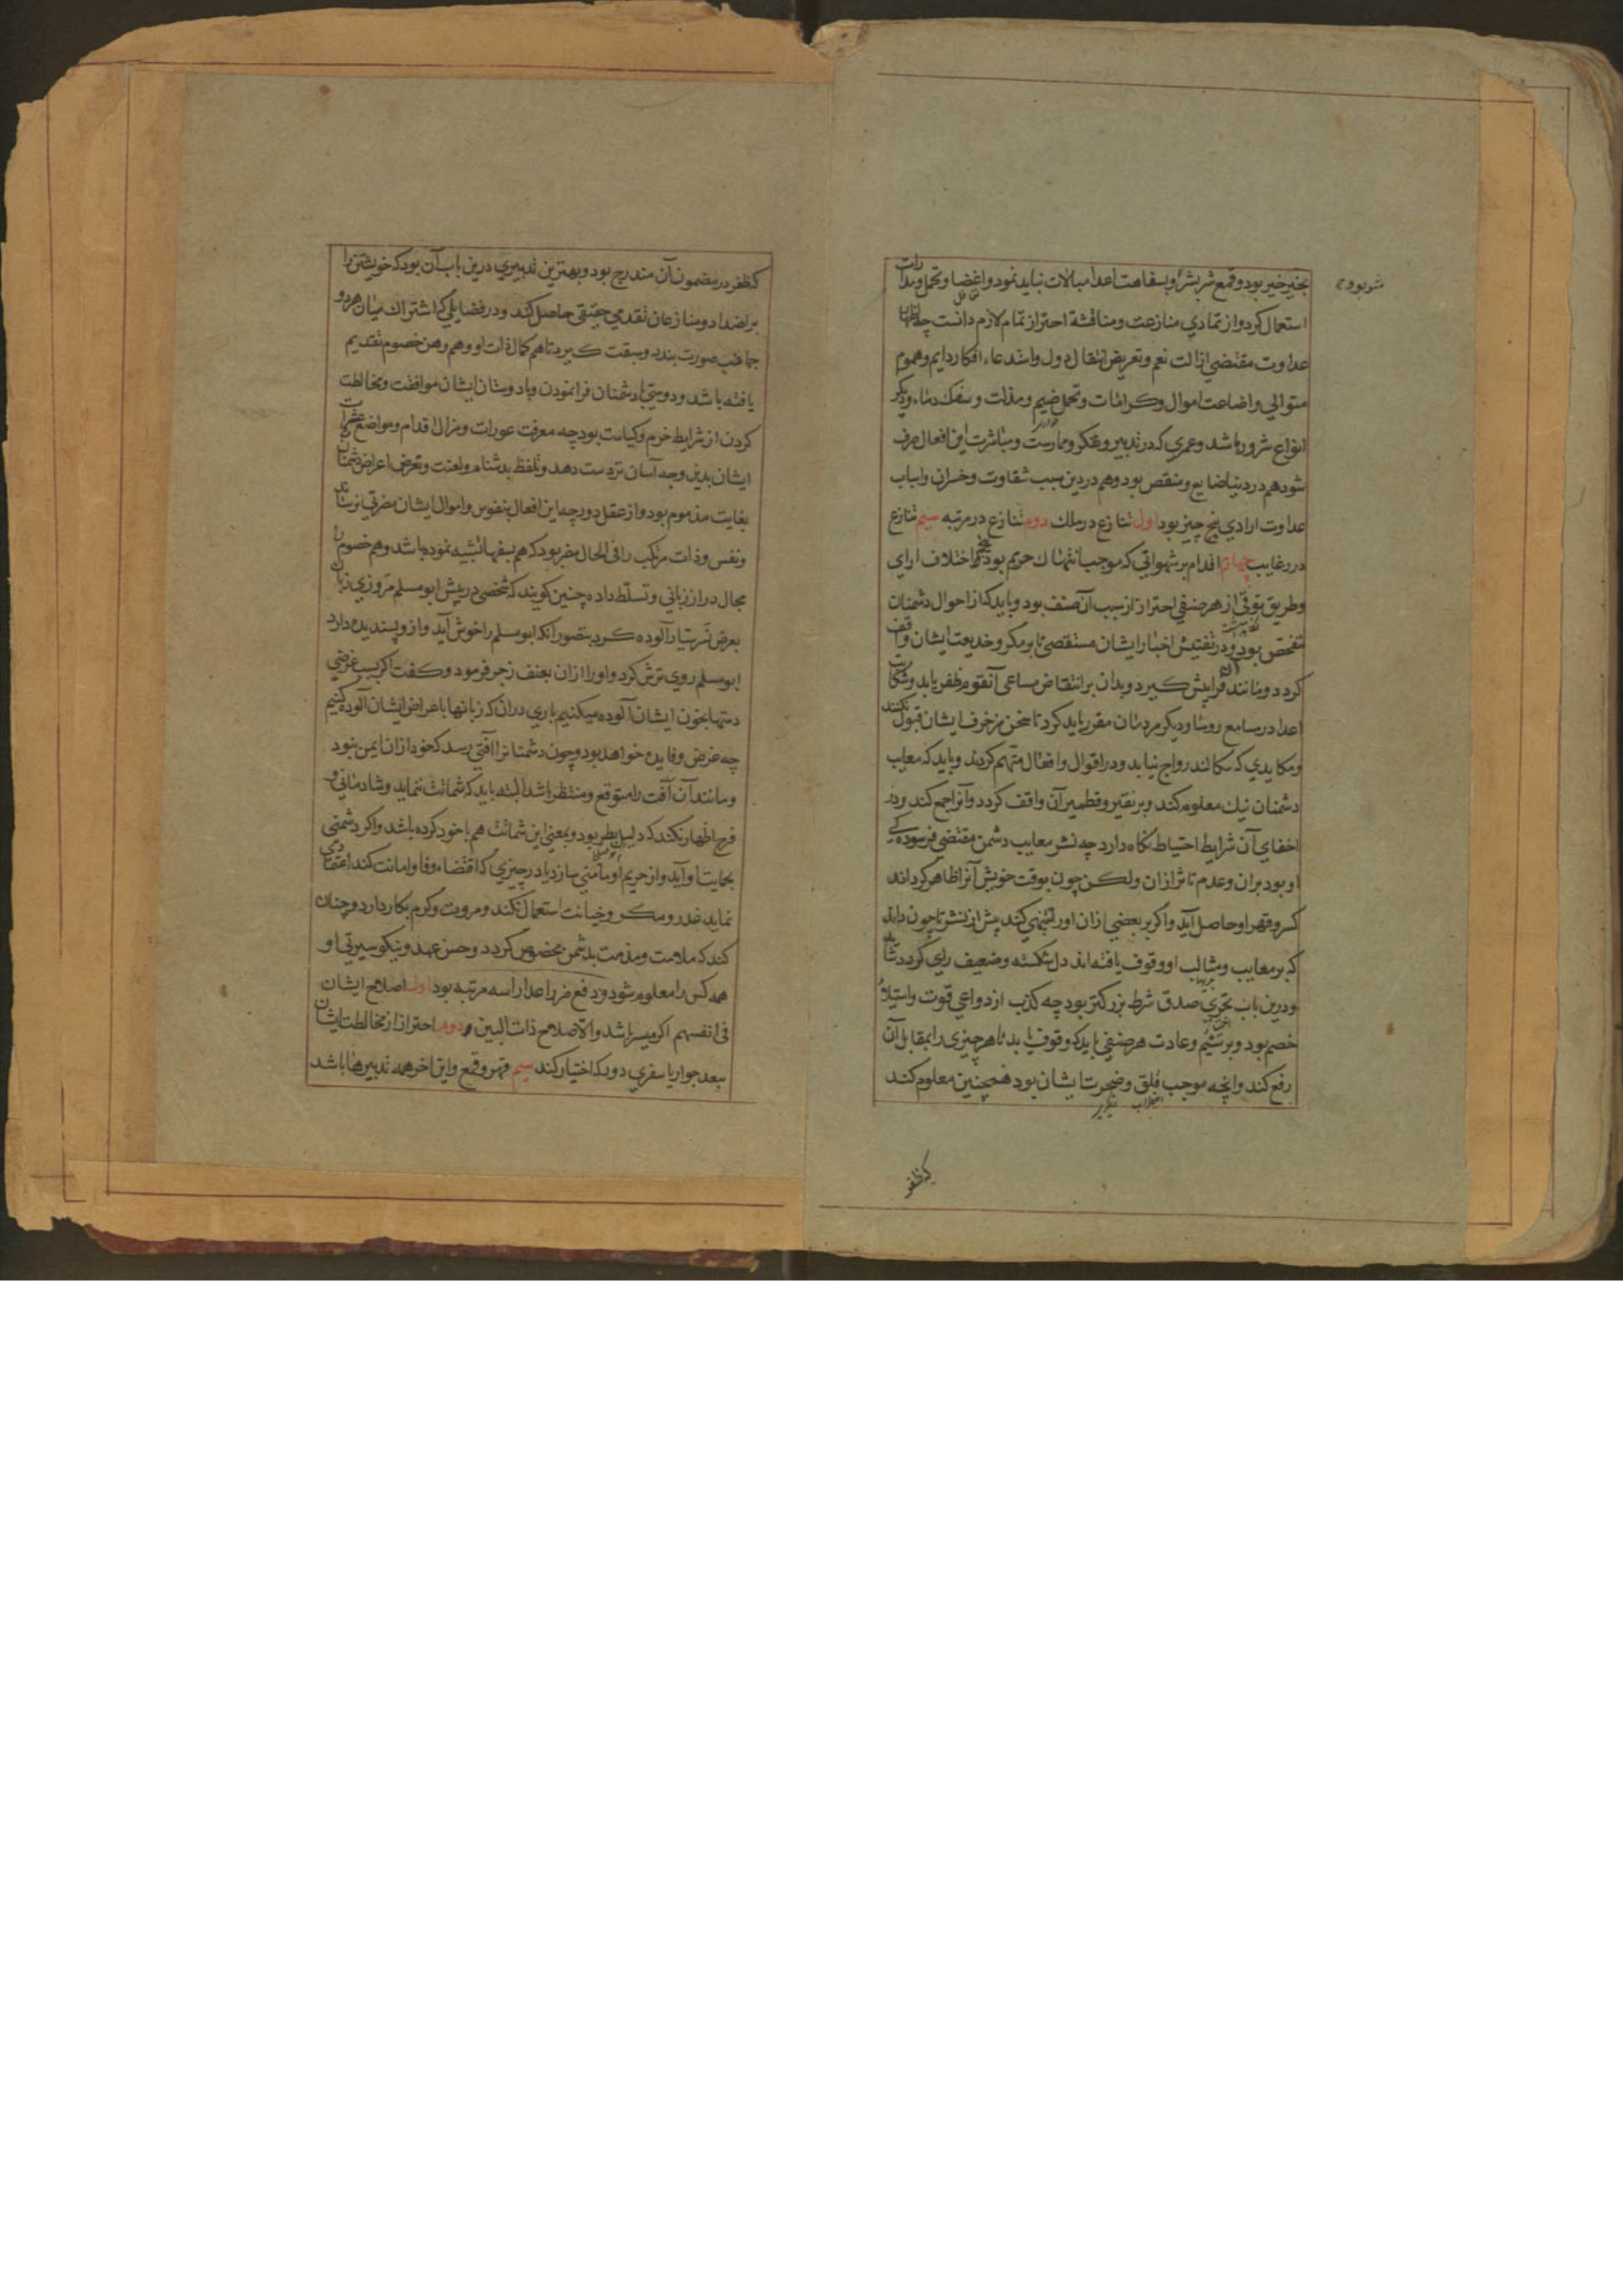 بخیر خیر بود و قمع شر بشر و بسفاهت اعدا مبالات نباید نمود و اغضا و تحمل و مدارات
شر بود
استعمال کرد و از تمادی منازعت و مناقشة احتراز تمام لازم دانست چه اظهار
عداوت مقتضی ازالت نعم و تعریض انتقال دول و استدعاء افکار دایم و هموم
متوالی و اضاعت اموال و کرامات و تحمل ضیم و مذلت و سفک دماء و دیگر
انواع شرور باشد و عمری که در تدبیر و تفکر و ممارست و مباشرت این افعال صرف
شود هم در دنیا ضایع و منقص بود و هم در دین سبب شقاوت و خسران و اسباب
عداوت ارادی پنج چیز بود اول تنازع در ملک دوم تنازع در مرتبه سیم تنازع
در رغایب چهارم اقدام بر شهواتی که موجب انتهاک حرم بود پنجم اختلاف ارای
و طریق توقی از هر صنفی احتراز از سبب آن صنف بود و باید که از احوال دشمنان
متفحص بود و در تفتیش اخبار ایشان مستقصی تا بر مکر و خدیعت ایشان واقف
کردد و مانند آن فرا پیش کیرد و بدان بر انتقاض مساعی آنقوم ظفر یابد و شکایت
اعدا در مسامع روسا و دیکر مردمان مقرر باید کرد تا سخن مزخرف ایشان قبول نکنند
و مکایدی که سکالند رواج نیابد و در اقوال و افعال متهم کردند و باید که معایب
دشمنان نیک معلوم کند و بر نقیر و قطمیر آن واقف کردد و آنرا جمع کند و در
اخفای آن شرایط احتیاط نگاه دارد چه نشر معایب دشمن مقتضی فرسودگی
او بود بران و عدم تاثر ازان ولکن چون بوقت خویش آنرا ظاهر کرداند
کسر و قهر او حاصل آید و اکر بر بعضی ازان او را تنبیهی کند پیش از نشر تا چون داند
که بر معایب و مثالب او وقوف یافته اند دل شکسته و ضعیف رای کردد شاید
و درین باب تحری صدق شرط بزرگتر بود چه کذب از دواعی قوت و استیلاء
خصم بود و بر شیم و عادت هر صنفی باید که وقوف یابد تا هر چیزی را بمقابل آن
رفع کند و انچه موجب قلق و ضجرت ایشان بود همچنین معلوم کند
که ظفر
که ظفر در مضمون آن مندرج بود و بهترین تدبیری درین باب آن بود که خویشتن را
بر اضداد و منازعان تقدمی حقیقی حاصل کند و در فضایلی که اشتراک میان هر دو
جانب صورت بندد و سبقت کیرد تا هم کمال ذات او و هم وهن خصوم تقدیم
یافته باشد و دوستی با دشمنان فرا نمودن و با دوستان ایشان موافقت و مخالطت
کردن از شرایط حزم و کیاست بود چه معرفت عورات و مزال اقدام و مواضع عثرات
ایشان بدین وجه آسان تر دست دهد و تلفظ بدشنام و لعنت و تعرض اعراض دشمنان
بغایت مذموم بود و از عقل دور چه این افعال بنفوس و اموال ایشان مضرتی نرساند
و نفس و ذات مرتکب را فی الحال مضر بود که هم بسفها تشبه نموده باشد و هم خصوم را
مجال دراز زبانی و تسلط داده چنین کویند که شخصی در پیش ابو مسلم مروزی زبان
بعرض نصر سیار آلوده کرد بتصور انکه ابو مسلم را خوش آید و از و پسندیده دارد
ابو مسلم روی ترش کرد و او را ازان بعنف زجر فرمود و کفت اگر بسبب غرضی
دستها بخون ایشان آلوده میکنیم باری در ان که زبانها باعراض ایشان آلوده کنیم
چه غرض و فایده خواهد بود و چون دشمنانرا آفتی رسد که خود ازان ایمن نبود
و مانند آن آفت را متوقع و منتظر باشد البته باید که شماتت ننماید و شادمانی و
فرح اظهار نکند که دلیل بطر بود و بمعنی این شماتت هم با خود کرده باشد و اکر دشمنی
بحمایت او آید و از حریم او مأمنی سازد یا در چیزی که اقتضاء وفا و امانت کند اعتمادی
نماید غدر و مکر و خیانت استعمال نکند و مروت و کرم بکار دارد و چنان
کند که ملامت و مذمت بدشمن مخصوص کردد و حسن عهد و نیکو سیرتی او
همه کس را معلوم شود و دفع ضرر اعدا را سه مرتبه بود اول اصلاح ایشان
فی انفسهم اکر میسر باشد و الا صلاح ذات البین دوم احتراز از مخالطت ایشان
ببعد جوار یا سفری دور که اختیار کند سیم قهر و قمع و این اخر همه تدبیرها باشد